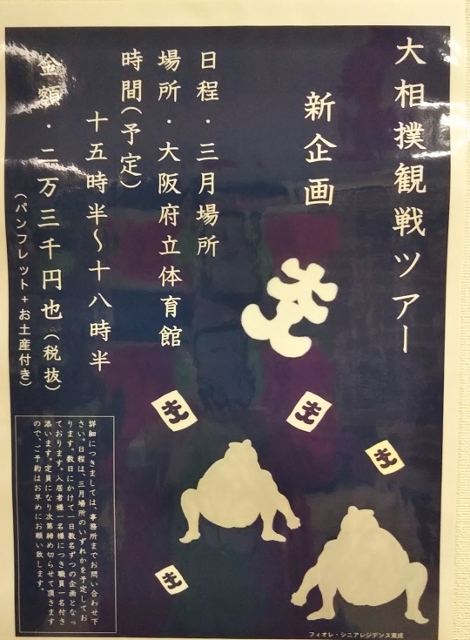 大相撲観戦ツアー
新企画
日程・三月場所
場所・大阪府立体育館
時間(予定)
十五時半〜十八時半
金額・二万三千円也(税抜)
(パンフレット+お土産付き)
詳細につきましては、事務所までお問い合わせ下
さい。日程は、三月場所のいずれかを予定してお
ります。数日にかけて一日数名ずつの企画となっ
ております。入居者様一名様につき職員一名付き
添います。定員になり次第締め切らせて頂きます
ので、ご予約はお早めにお願い致します。
フィオレ・シニアレジデンス東成